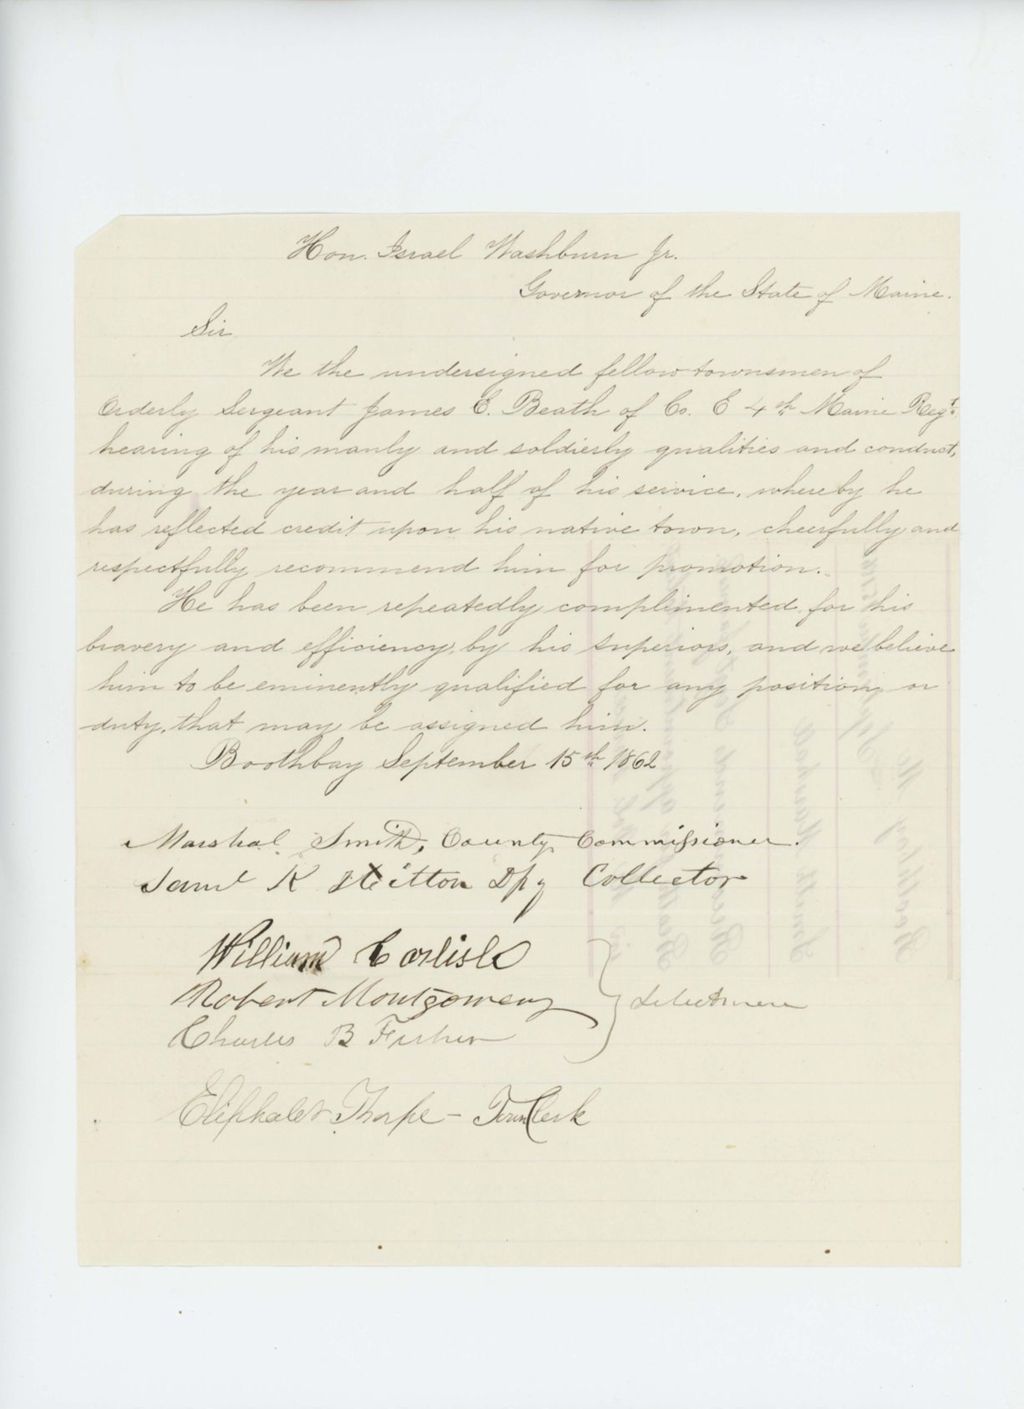 Hon. Israel Washburn Jr.
Governor of the State of Maine.
Sir
We the undersigned fellow townsmen of
Orderly Sergeant James E. Beath of Co. E 4th Maine Regt.
hearing of his manly and soldierly qualities and conduct,
during the year and half of his service, whereby he
has reflected credit upon his native town, cheerfully and
respectfully recommend him for promotion.
He has been repeatedly complimented for his
bravery and efficiency, by his superiors, and we believe
him to be eminently qualified for any position, or
duty, that may be assigned him.
Boothbay September 15th 1862
Marshal Smith, County Commissioner.
Saml K Dpy Collector
William Carlisle
Robert Montgomery Selectmen
Charles B Fisher
Eliphalet Thorpe - Town Clerk